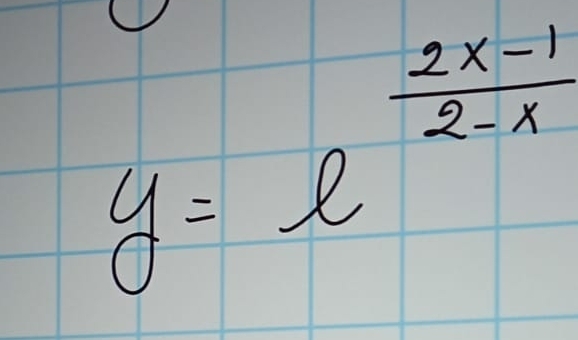 y = e^{\frac{2x-1}{2-x}}